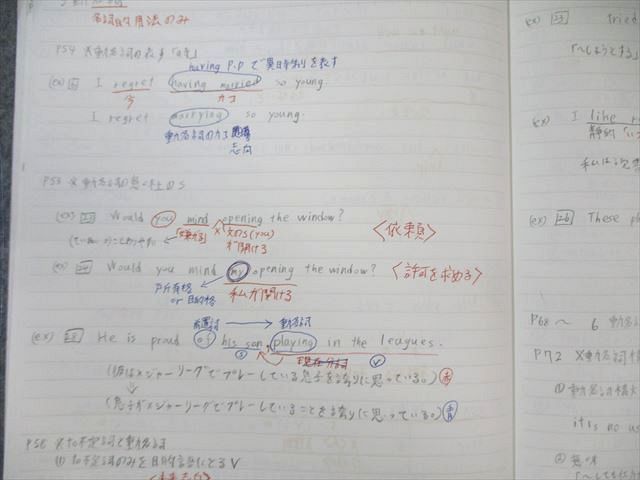 名詞的用法のみ
P54 ※動名詞の表す「時」
having P.P で異時制を表す
(ex) I regret having married so young.
今
カコ
I regret marrying so young.
動名詞
志向
P55 ※動名詞の意味上のS
(ex) 23 Would you mind opening the window?
<依頼>
「嫌がる」 × 文のS(you)
が開ける
(ex) 24 Would you mind my opening the window?
<許可を求める>
所有格
or 目的格
私が開ける
前置詞 → 動名詞
(ex) 25 He is proud of his son playing in the leagues.
S
現在分詞
V
(彼はメジャーリーグでプレーしている息子を誇りに思っている。) 赤
(息子がメジャーリーグでプレーしていることを誇りに思っている。) 青
P56 ※to不定詞と動名詞
(1) to不定詞のみを目的語にとるV
<未来志向>
(ex) 23 tried
「〜しようとする」
(ex) I like r
静的
私は
(ex) 26 These p
P68 〜 6 動名詞
P72 ※動名詞
(1) 動名詞
it is no us
(2) 意味